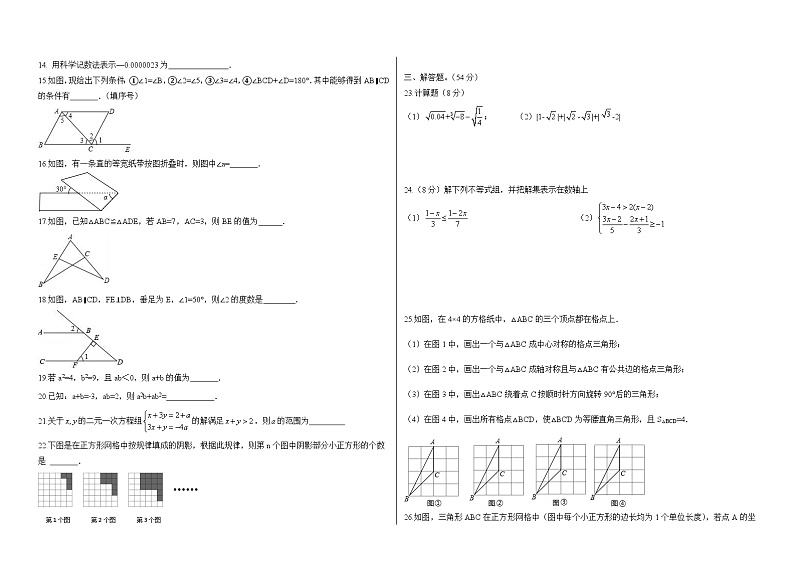 14. 用科学记数法表示—0.0000023为______________.
15如图,现给出下列条件:①∠1=∠B,②∠2=∠5,③∠3=∠4,④∠BCD+∠D=180°.其中能够得到 AB∥CD
的条件有_______.(填序号)
A D
5 4
2
3 1
B C E
16如图,有一条直的等宽纸带按图折叠时,则图中∠α=_______.
30° α
17如图,已知△ABC≌△ADE,若 AB=7,AC=3,则 BE 的值为______.
A
E C
B D
18如图,AB∥CD,FE⊥DB,垂足为 E,∠1=50°,则∠2 的度数是________.
A 2 B
E
1
C F D
19若 a²=4,b²=9,且 ab<0,则 a+b 的值为_______.
20.已知:a+b=-3,ab=2,则 a²b+ab²=____________.
21.关于x,y的二元一次方程组{x+3y=2+a 3x+y=-4a 的解满足x+y>2,则a的范围为_________
22下图是在正方形网格中按规律填成的阴影,根据此规律,则第 n 个图中阴影部分小正方形的个数
是 _______.
······
第1个图 第2个图 第3个图
三、解答题。(54 分)
23.计算题(8 分)
(1)√0.04+∛-8-√(1/4); (2)|1-√2|+|√2-√3|+|√3-2|
24.(8 分)解下列不等式组,并把解集表示在数轴上
(1)(1-x)/3≤(1-2x)/7 (2){3x-4>2(x-2) (3x-2)/5-(2x+1)/3≥-1
25.如图,在 4×4 的方格纸中,△ABC 的三个顶点都在格点上.
(1)在图 1 中,画出一个与△ABC 成中心对称的格点三角形;
(2)在图 2 中,画出一个与△ABC 成轴对称且与△ABC 有公共边的格点三角形;
(3)在图 3 中,画出△ABC 绕着点 C 按顺时针方向旋转 90°后的三角形;
(4)在图 4 中,画出所有格点△BCD,使△BCD 为等腰直角三角形,且 S△BCD=4.
A A A A
C C C C
B B B B
图① 图② 图③ 图④
26.如图,三角形 ABC 在正方形网格中(图中每个小正方形的边长均为 1 个单位长度),若点 A 的坐